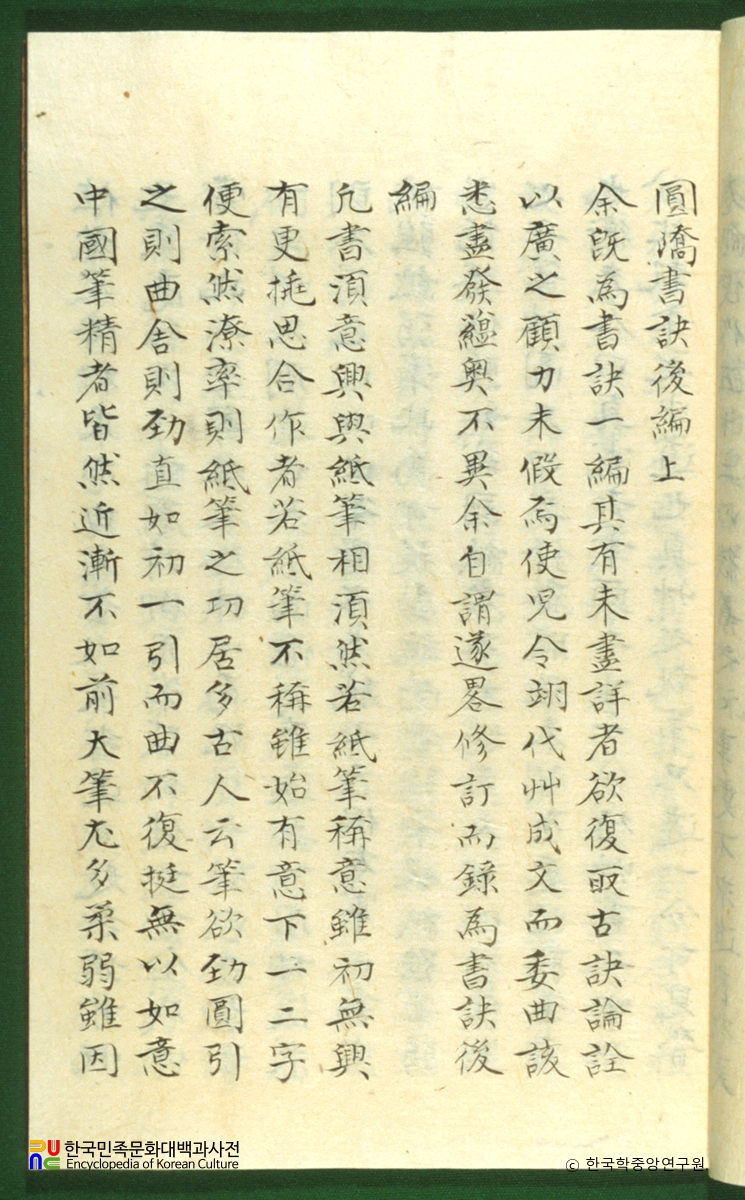 圓嶠書訣後編上
余旣爲書訣一編其有未盡詳者欲復取古訣論詮
以廣之顧力未假焉使児令翊代艸成文而委曲該
悉盡發蘊奧不異余自謂遂畧修訂而錄爲書訣後
編
凢書湏意興與紙筆相湏然若紙筆稱意雖初無興
有更挑思合作者若紙筆不稱雖始有意下一二字
便索然潦率則紙筆之功居多古人云筆欲勁圓引
之則曲舍則勁直如初一引而曲不復挺無以如意
中國筆精者皆然近漸不如前大筆尤多柔弱雖因
한국민족문화대백과사전
Encyclopedia of Korean Culture
© 한국학중앙연구원